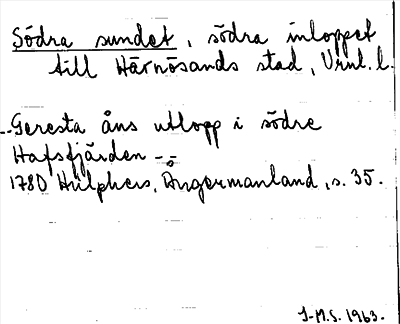 Södra sundet, södra inloppet
till Härnösands stad, Vrnl. l.
--Geresta åns utlopp i södre
Hafsfjärden -- 
1780 Hülphers, Ångermanland, s. 35.
J-M.S. 1963.